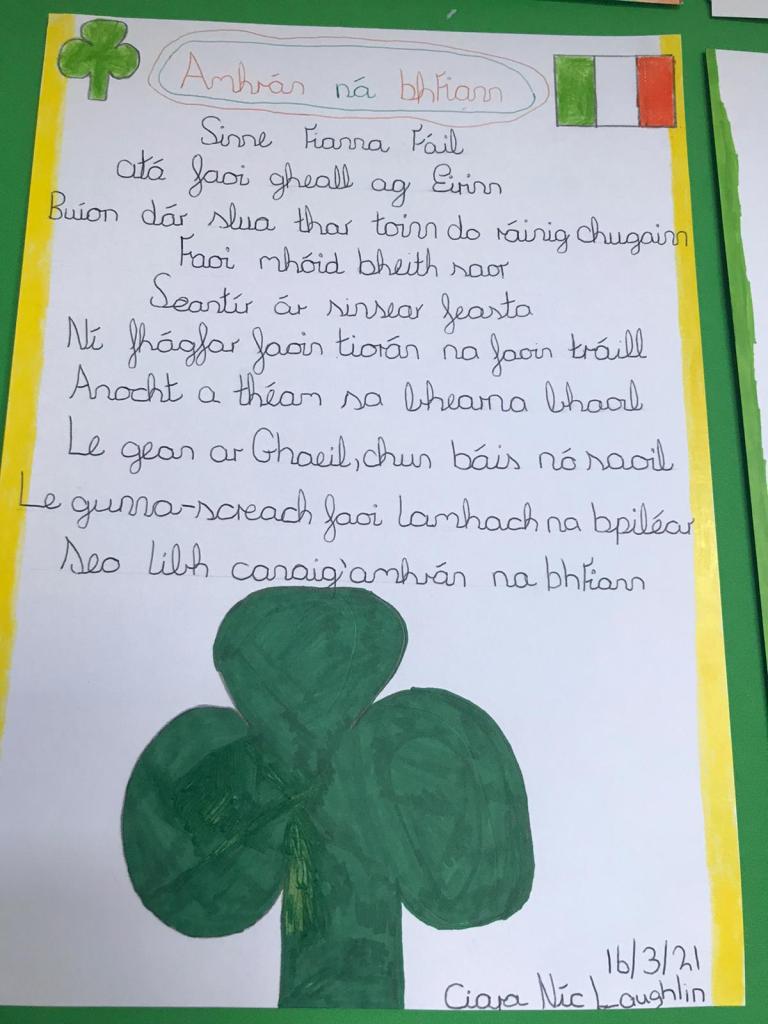 Amhrán ná bhFiann
Sinne Fianna Fáil
atá faoi gheall ag Éirinn
Buíon dár slua thar toinn do ráinig chugainn
Faoi mhóid bheith saor
Seantír ár sinsear feasta
Ní fhágfar faoin tiorán na faoin tráill
Anocht a théam sa bhearna bhaoil
Le gean ar Ghaeil, chun báis nó saoil
Le gunna-screach faoi lamhach na bpiléar
Seo libh canaig'amhrán na bhFiann
16/3/21
Ciara Nic Laughlin